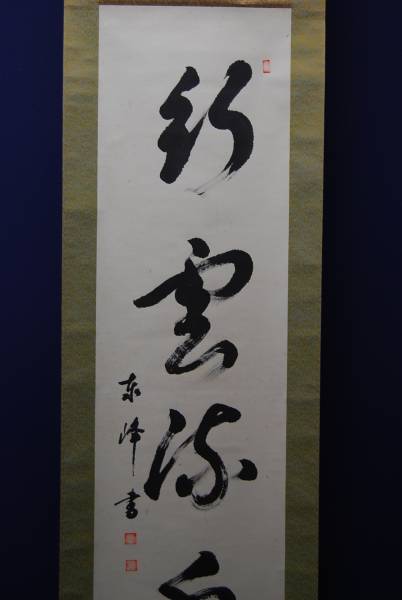 行雲流
東峰書